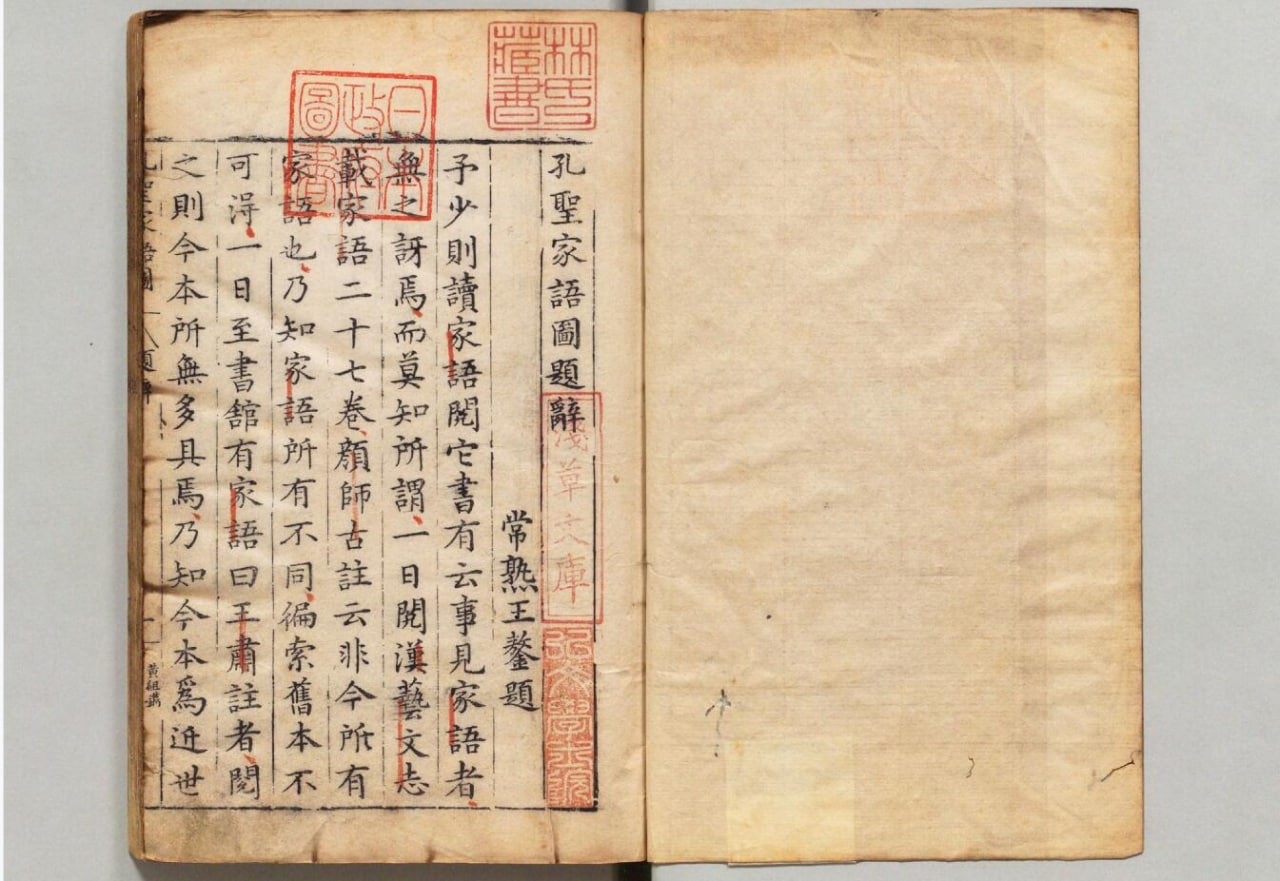 孔聖家語圖題辭
常熟王鏊題
予少則讀家語閱它書有云事見家語者
無之訝焉而莫知所謂一日閱漢藝文志
載家語二十七卷顔師古註云非今所有
家語也乃知家語所有不同徧索舊本不
可淂一日至書舘有家語曰王肅註者閱
之則今本所無多具焉乃知今本爲近世
孔聖家語圖 題辭 一
黃組鐫
林氏藏書
日本政府圖書
淺草文庫